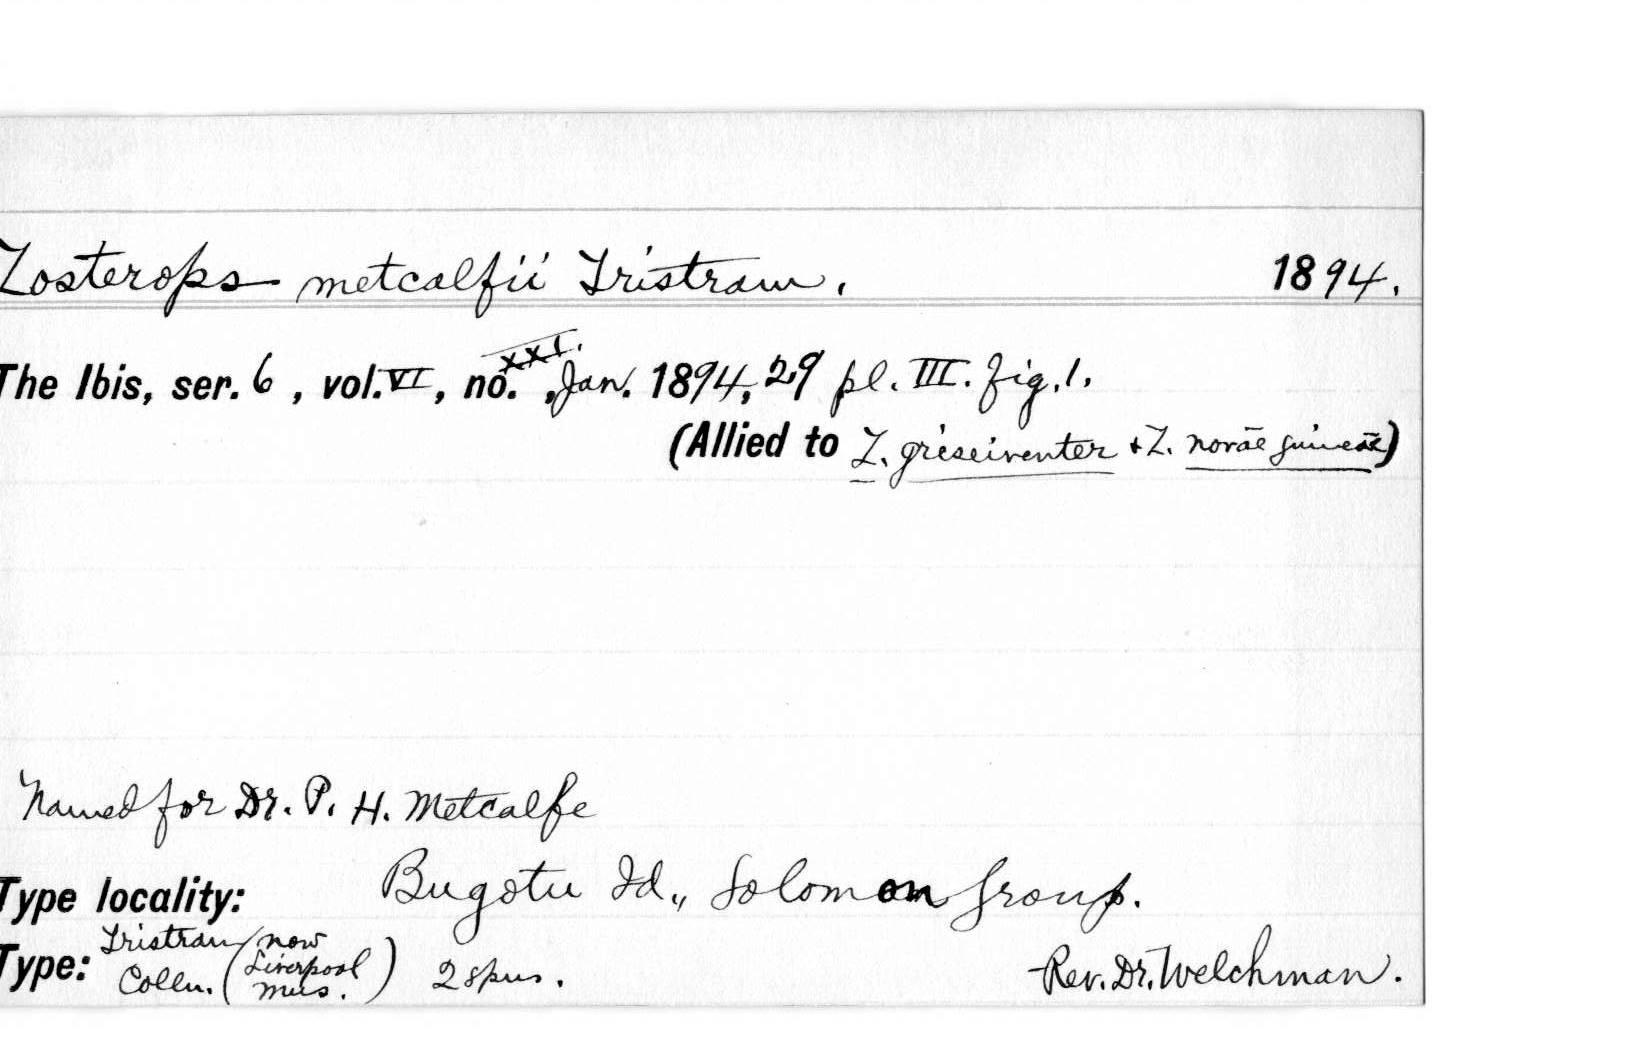 Zosterops metcalfii Tristram. 1894.
The Ibis, ser. 6, vol. VI, no. XXI., Jan. 1894, 29 pl. III. fig. 1.
(Allied to Z. griseiventer + Z. novae guineae)
Named for Dr. P. H. Metcalfe
Type locality: Bugotu Id., Solomon Group.
Type: Tristram Colln. (now Liverpool Mus.) 2 spns. Rev. Dr. Welchman.